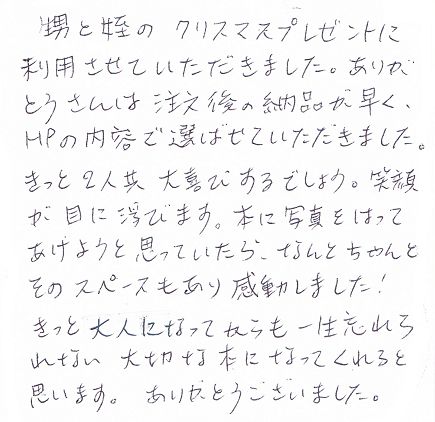 甥と姪の クリスマスプレゼントに
利用させていただきました。ありが
とうさんは 注文後の納品が早く、
HPの内容で選ばせていただきました。
きっと2人共 大喜びするでしょう。笑顔
が目に浮びます。本に写真をはって
あげようと思っていたら、なんとちゃんと
そのスペースもあり 感動しました!
きっと大人になってからも一生忘れら
れない 大切な本になってくれると
思います。 ありがとうございました。